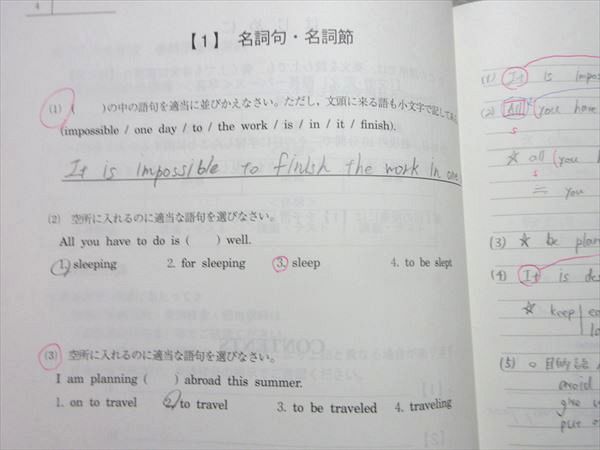 4
【1】 名詞句・名詞節
(1) ( )の中の語句を適当に並びかえなさい。ただし，文頭に来る語も小文字で記してあ
(impossible / one day / to / the work / is / in / it / finish).
It is impossible to finish the work in one
(2) 空所に入れるのに適当な語句を選びなさい。
All you have to do is ( ) well.
1. sleeping 2. for sleeping 3. sleep 4. to be slept
(3) 空所に入れるのに適当な語句を選びなさい。
I am planning ( ) abroad this summer.
1. on to travel 2. to travel 3. to be traveled 4. traveling
(1) It is impos
(2) All you have
s
☆ all (you h
s
= you
(3) ☆ be plan
(4) It is de
☆ keep
(5) ○ 目的語
avoid
give u
put o